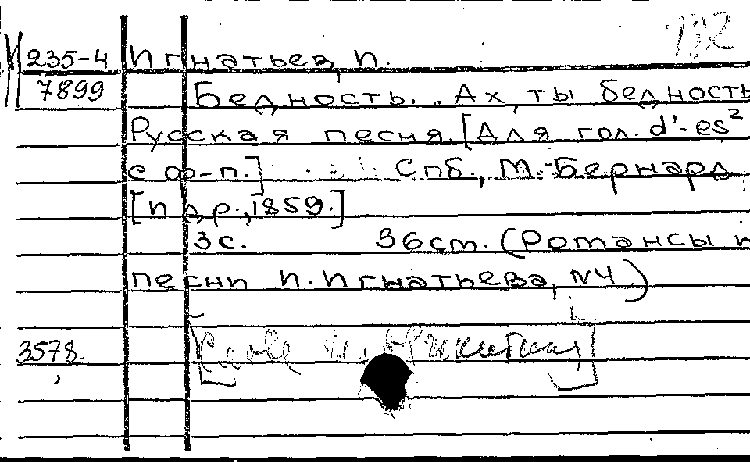 235-4
7899
Игнатьев, И.
Бедность. „Ах, ты бедность
Русская песня. [Для гол. d'-es²
с ф-п.] Спб., М. Бернард
[п.д.р., 1859.]
3с. 36см. (Романсы и
песни И. Игнатьева, №4)
3578